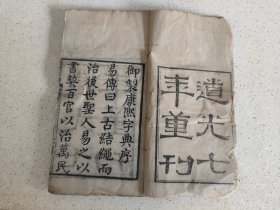 道光七
年重刊
御製康熙字典序
易傳曰上古結繩而
治後世聖人易之以
書契百官以治萬民